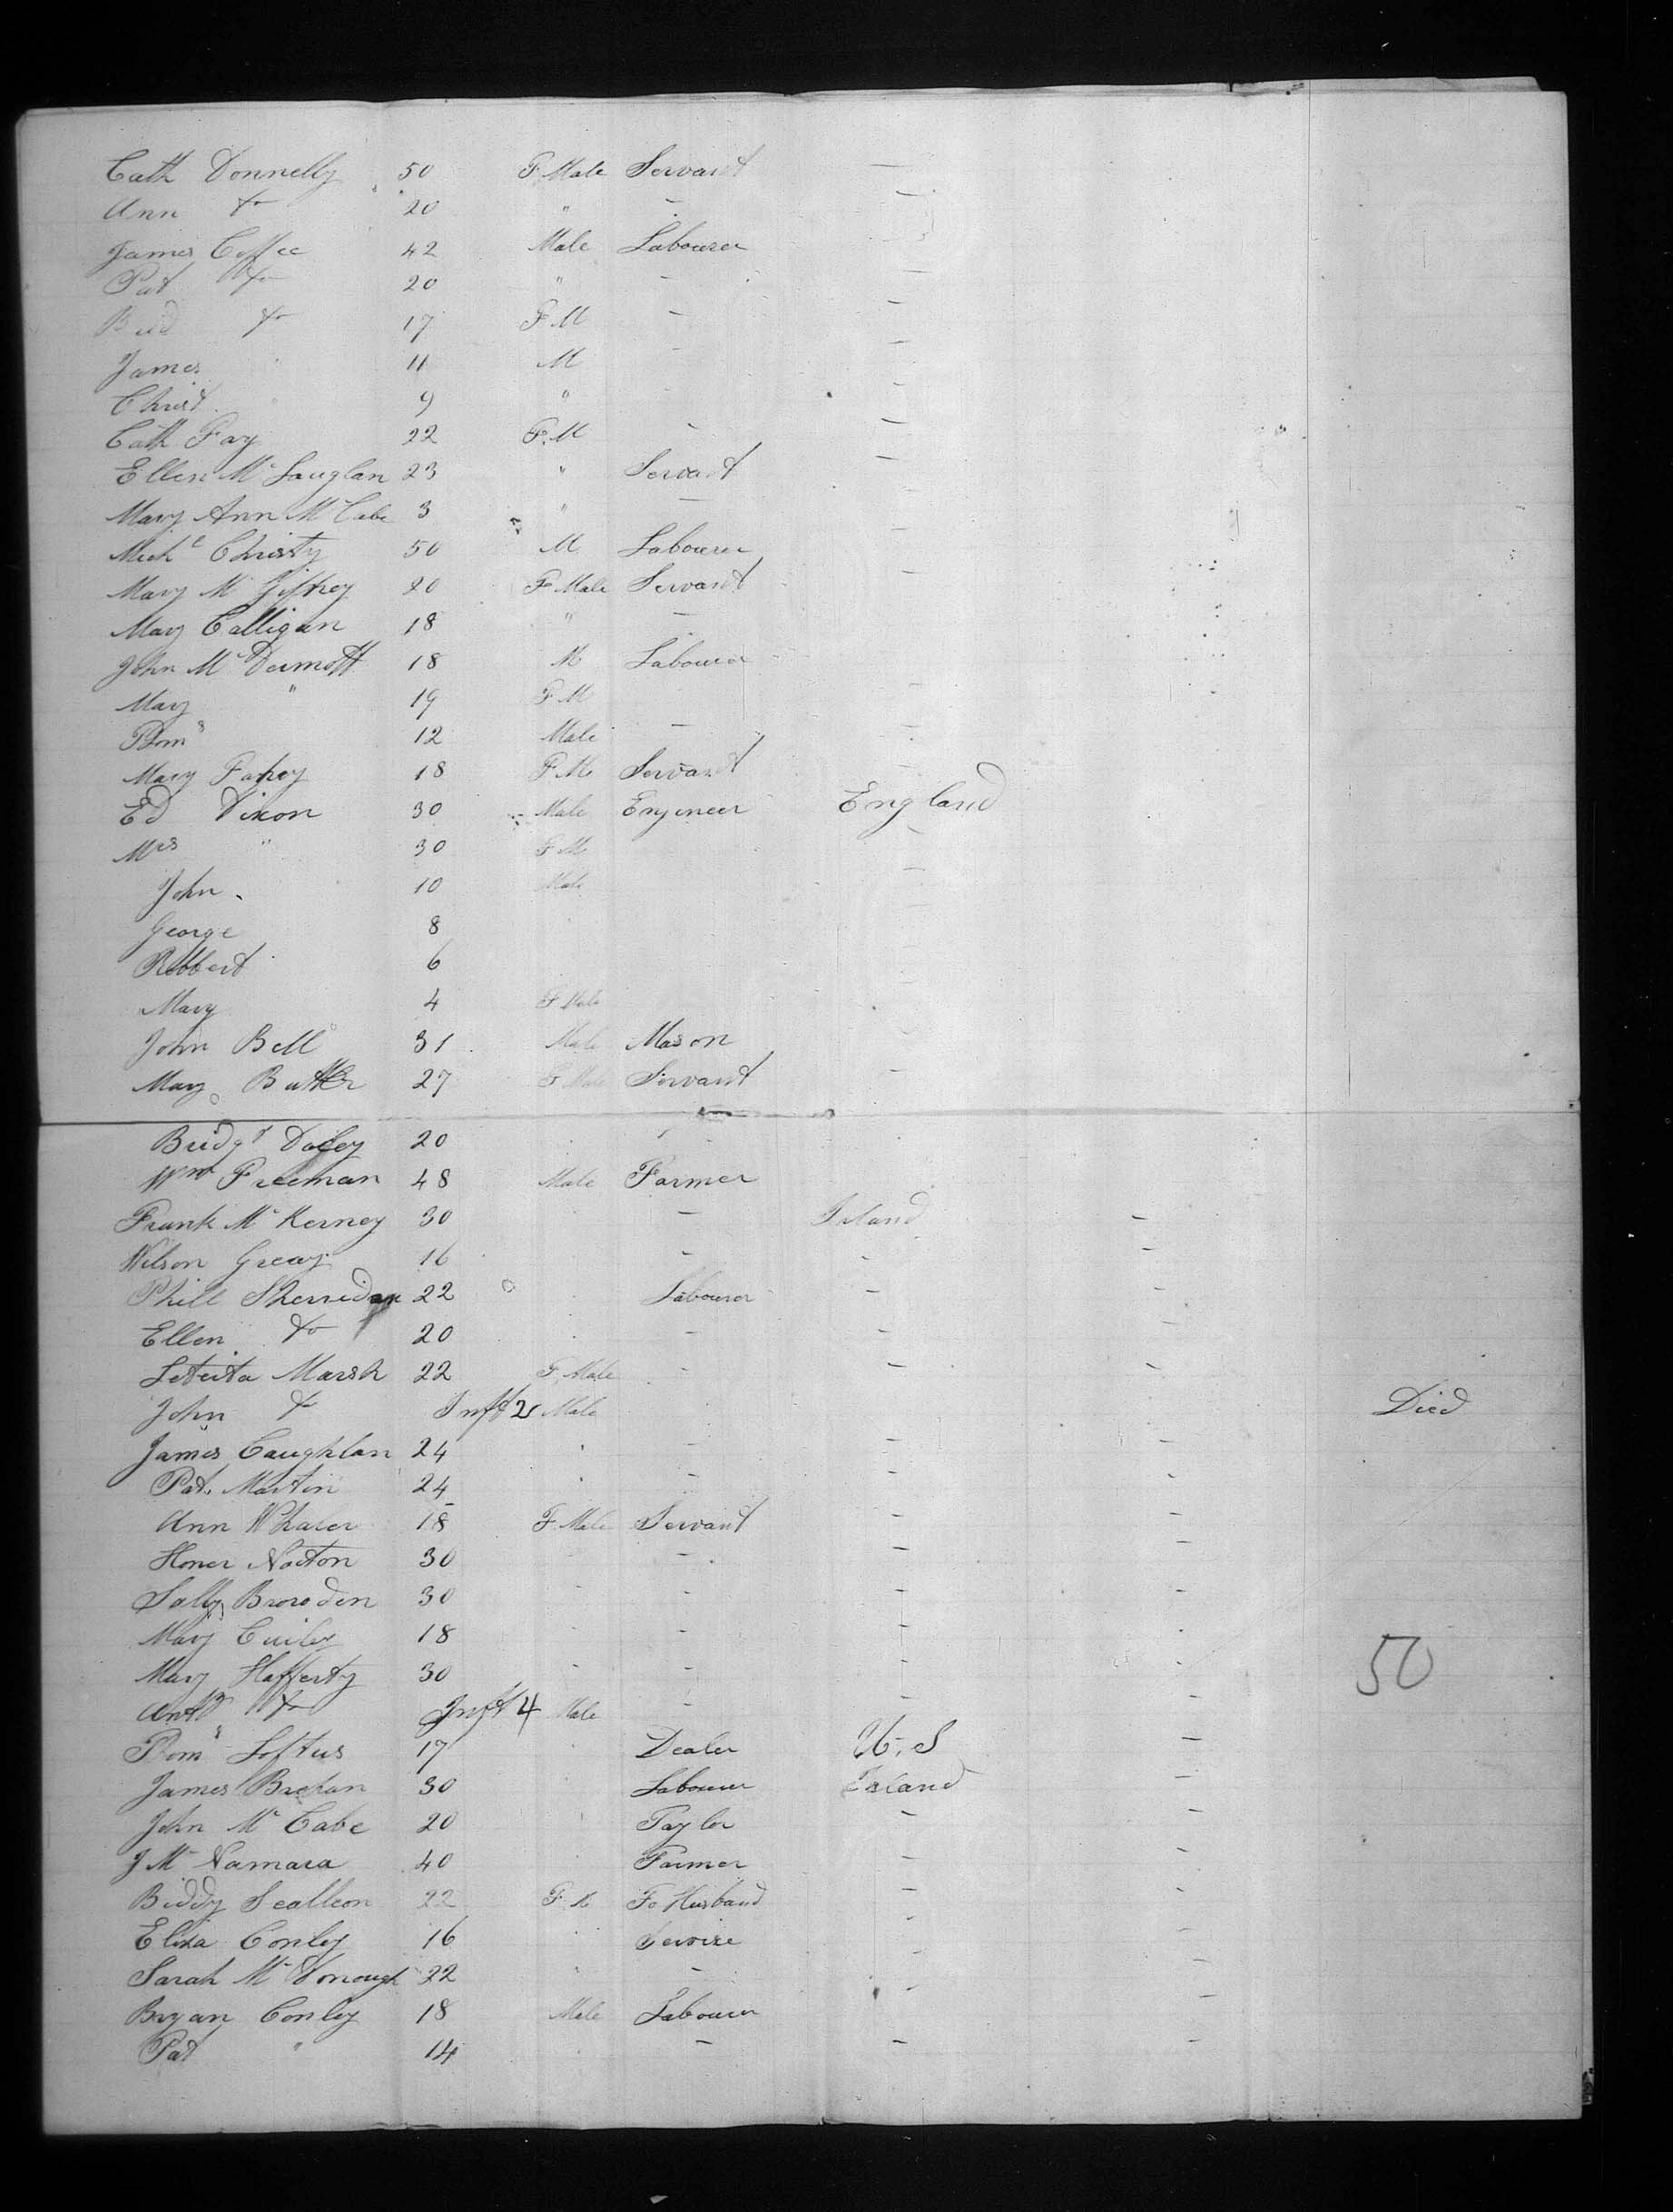 Cath Donnelly 50 F. Male Servant —
Ann Do 20 " — —
James Coffee 42 Male Labourer
Pat Do 20 " — —
Brid Do 17 F M — —
James 11 M — —
Christ 9 " — —
Cath Fay 22 F. M — —
Ellen Mc Lauglan 23 " Servant —
Mary Ann Mc Cabe 3 " — —
Mich l Christy 50 M Labourer —
Mary Mc 20 F Male Servant —
Mary Calligan 18 " —
John Mc Dermott 18 M Labourer
Mary " 19 F M —
Thom s 12 Male — —
Mary Fahey 18 F M Servant —
Ed Dixon 30 Male Engineer England
Mrs " 30 F M —
John 10 Male —
George 8
Robbert 6
Mary 4 F Male
John Bell 31 Male Mason
Mary Butler 27 F Male Servant —
Bridgt Daley 20
Wm Freeman 48 Male Farmer
Frank Mc Kerney 30 — Ireland —
Wilson Greay 16 — — —
Phill Sherridan 22 Labourer —
Ellen Do 20 — — —
Leteita Marsh 22 F. Male — — —
John Do Inft 2 Male Died
James Caughlan 24 — — —
Pat. Martin 24 — — —
Ann Whaler 18 F. Male Servant — —
Honer Norton 30 — — —
Sally 30 — — —
Mary 18 — —
Mary Hafferty 30 — — 50
Anty Do Inft 4 Male — — —
Thom s Loftus 17 Dealer U. S —
James 30 Labourer Ireland —
John Mc Cabe 20 Taylor — —
J Mc Namara 40 Farmer — —
Biddy Scalleon 22 F. M To Husband — —
Eliza Conley 16 Servise — —
Sarah Mc Donough 22 " — — —
Bryan Conley 18 Male Labourer — —
Pat " 14 — — —